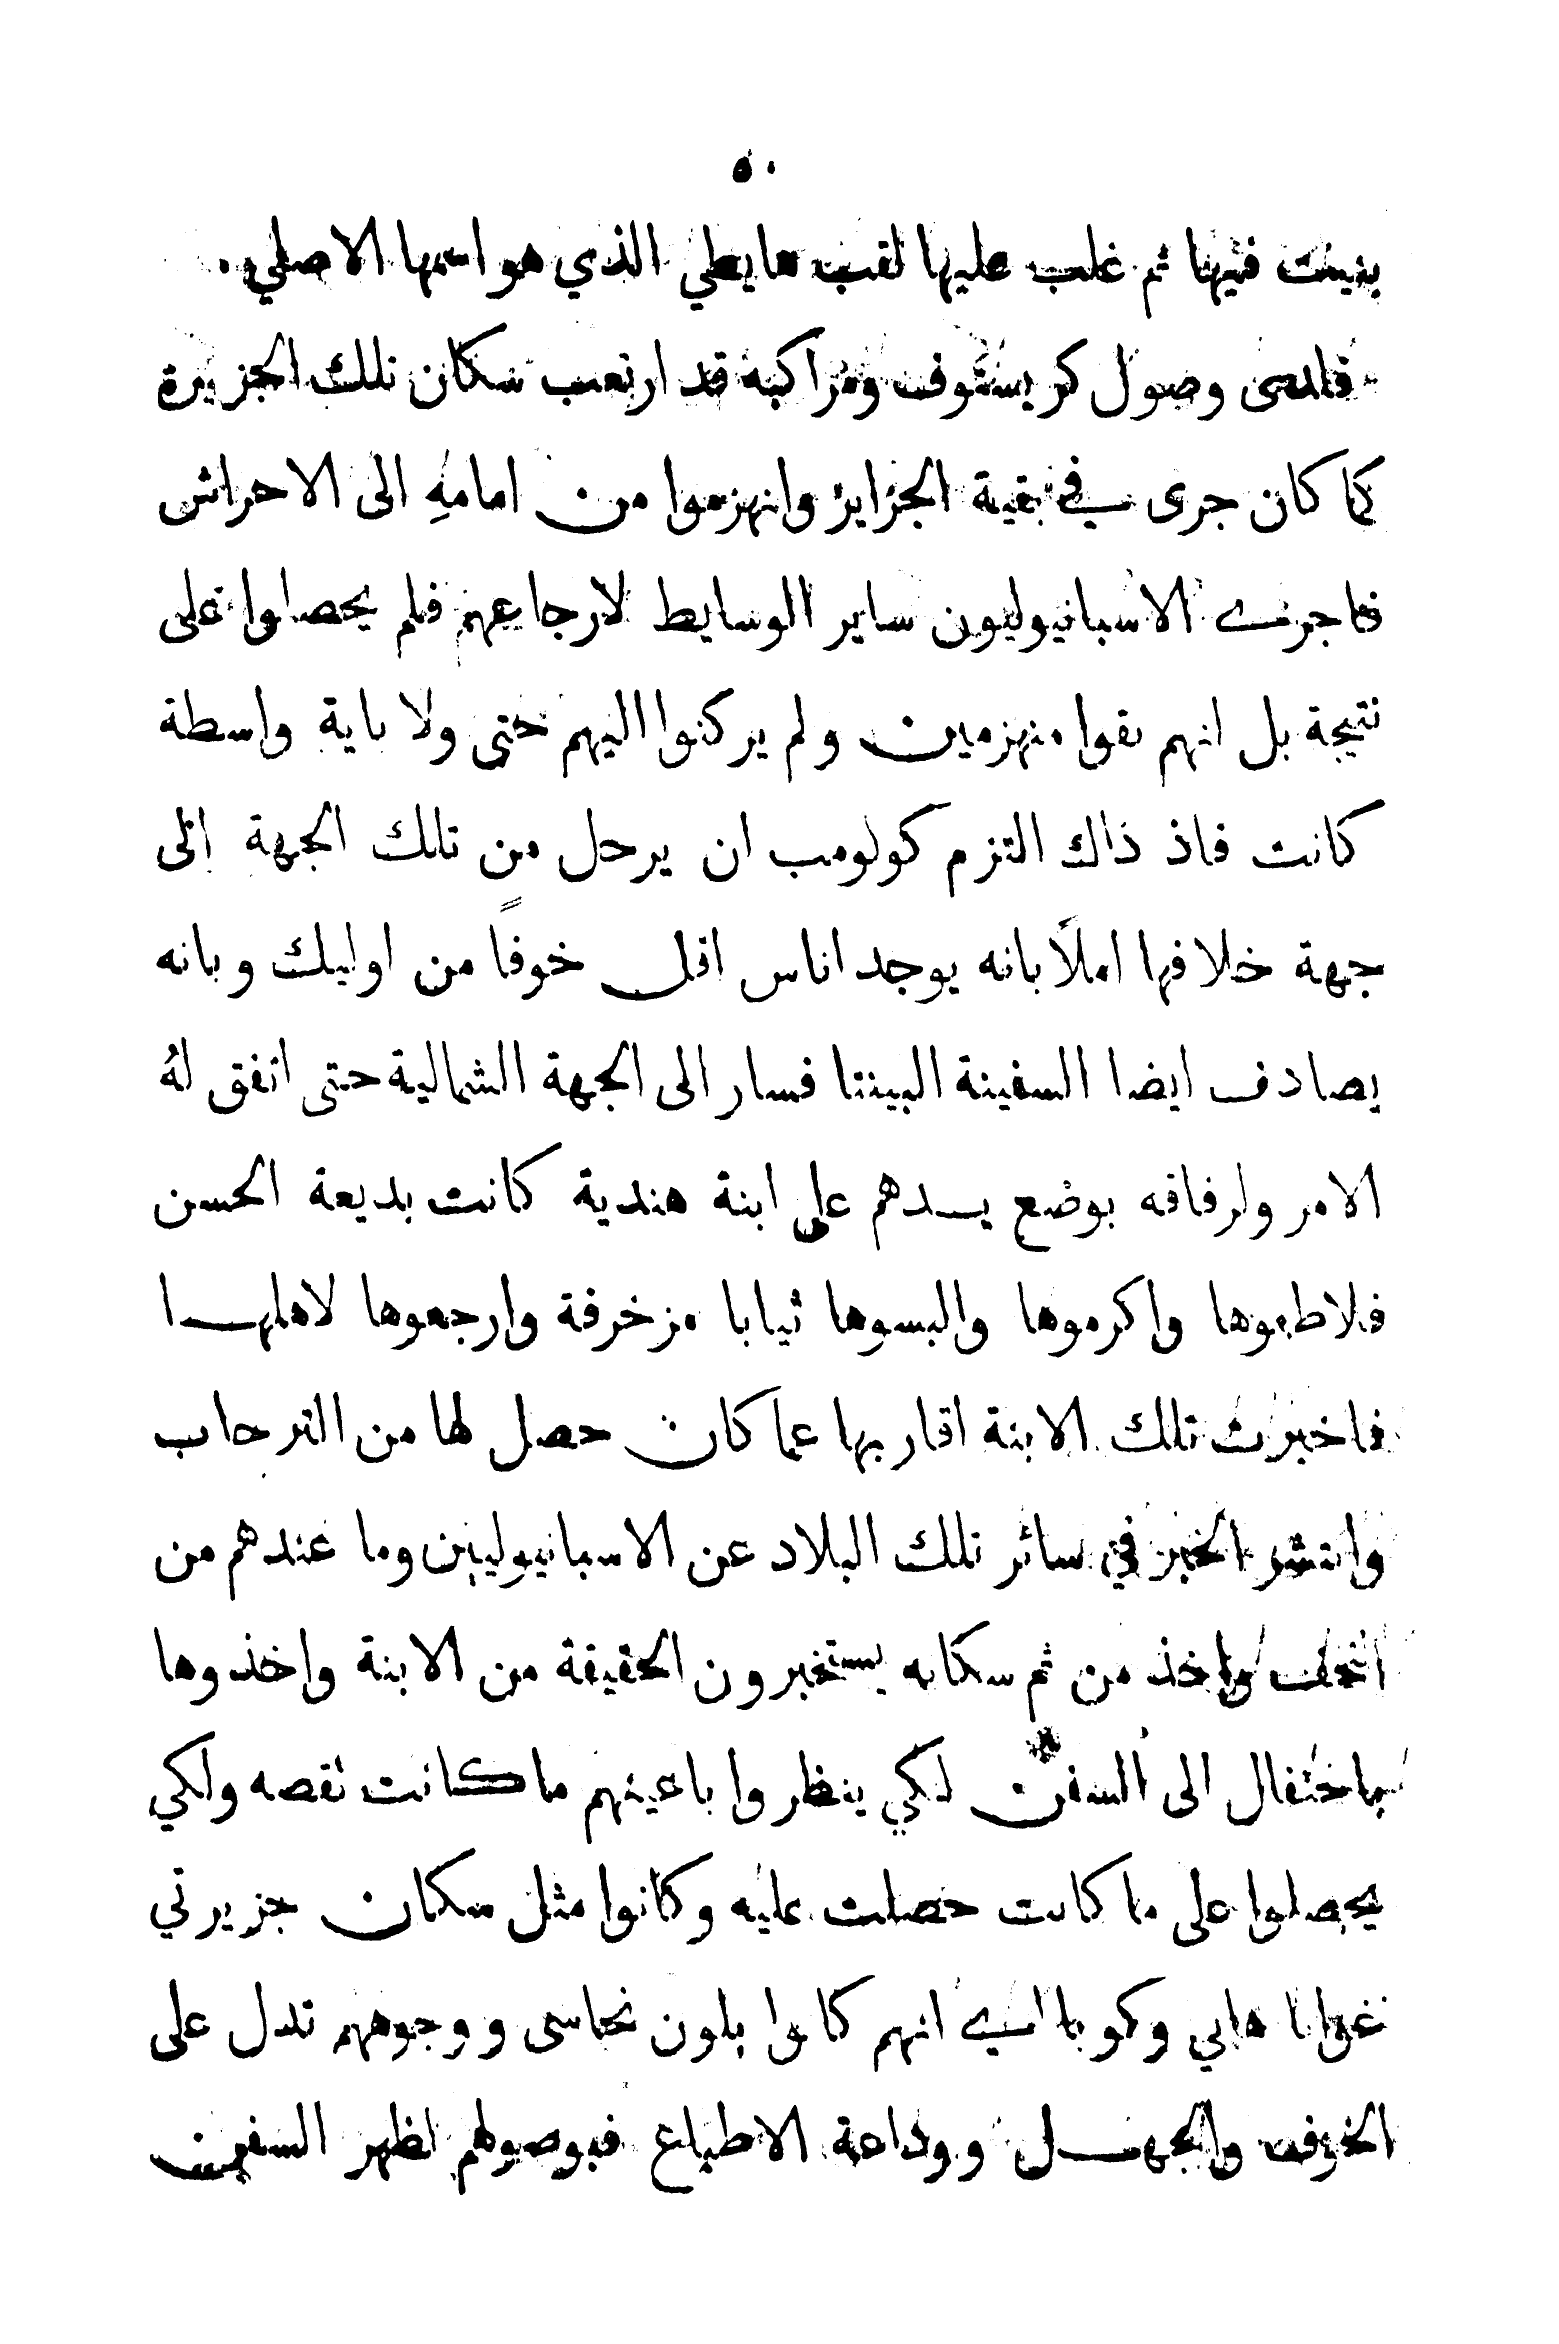 ٥٠
بنيت فيها ثم غلب عليها لقب هايطي الذي هو اسمها الاصلي.
فلدى وصول كريستوف ومراكبه قد ارتعب سكان تلك الجزيرة
كما كان جرى في بقية الجزاير وانهزموا من امامهِ الى الاحراش
فاجرى الاسبانيوليون ساير الوسايط لارجاعهم فلم يحصلوا على
نتيجة بل انهم بقوا منهزمين ولم يركنوا اليهم حتى ولا باية واسطة
كانت فاذ ذاك التزم كولومب ان يرحل من تلك الجهة الى
جهة خلافها املًا بانه يوجد اناس اقل خوفًا من اوليك وبانه
يصادف ايضا السفينة البينتا فسار الى الجهة الشمالية حتى اتفق لهُ
الامر ولرفاقه بوضع يدهم على ابنة هندية كانت بديعة الحسن
فلاطفوها واكرموها والبسوها ثيابا مزخرفة وارجعوها لاهلها
فاخبرت تلك الابنة اقاربها عما كان حصل لها من الترحاب
وانتشر الخبر في سائر تلك البلاد عن الاسبانيوليين وما عندهم من
التحف واخذ من ثم سكانه يستخبرون الحقيقة من الابنة واخذوها
باحتفال الى السفن لكي ينظروا باعينهم ما كانت تقصه ولكي
يحصلوا على ما كانت حصلت عليه وكانوا مثل سكان جزيرتي
غوانا هاني وكوبا اي انهم كانوا بلون نحاسى ووجوههم تدل على
الخوف والجهل ووداعة الاطباع فبوصولهم لظهر السفن